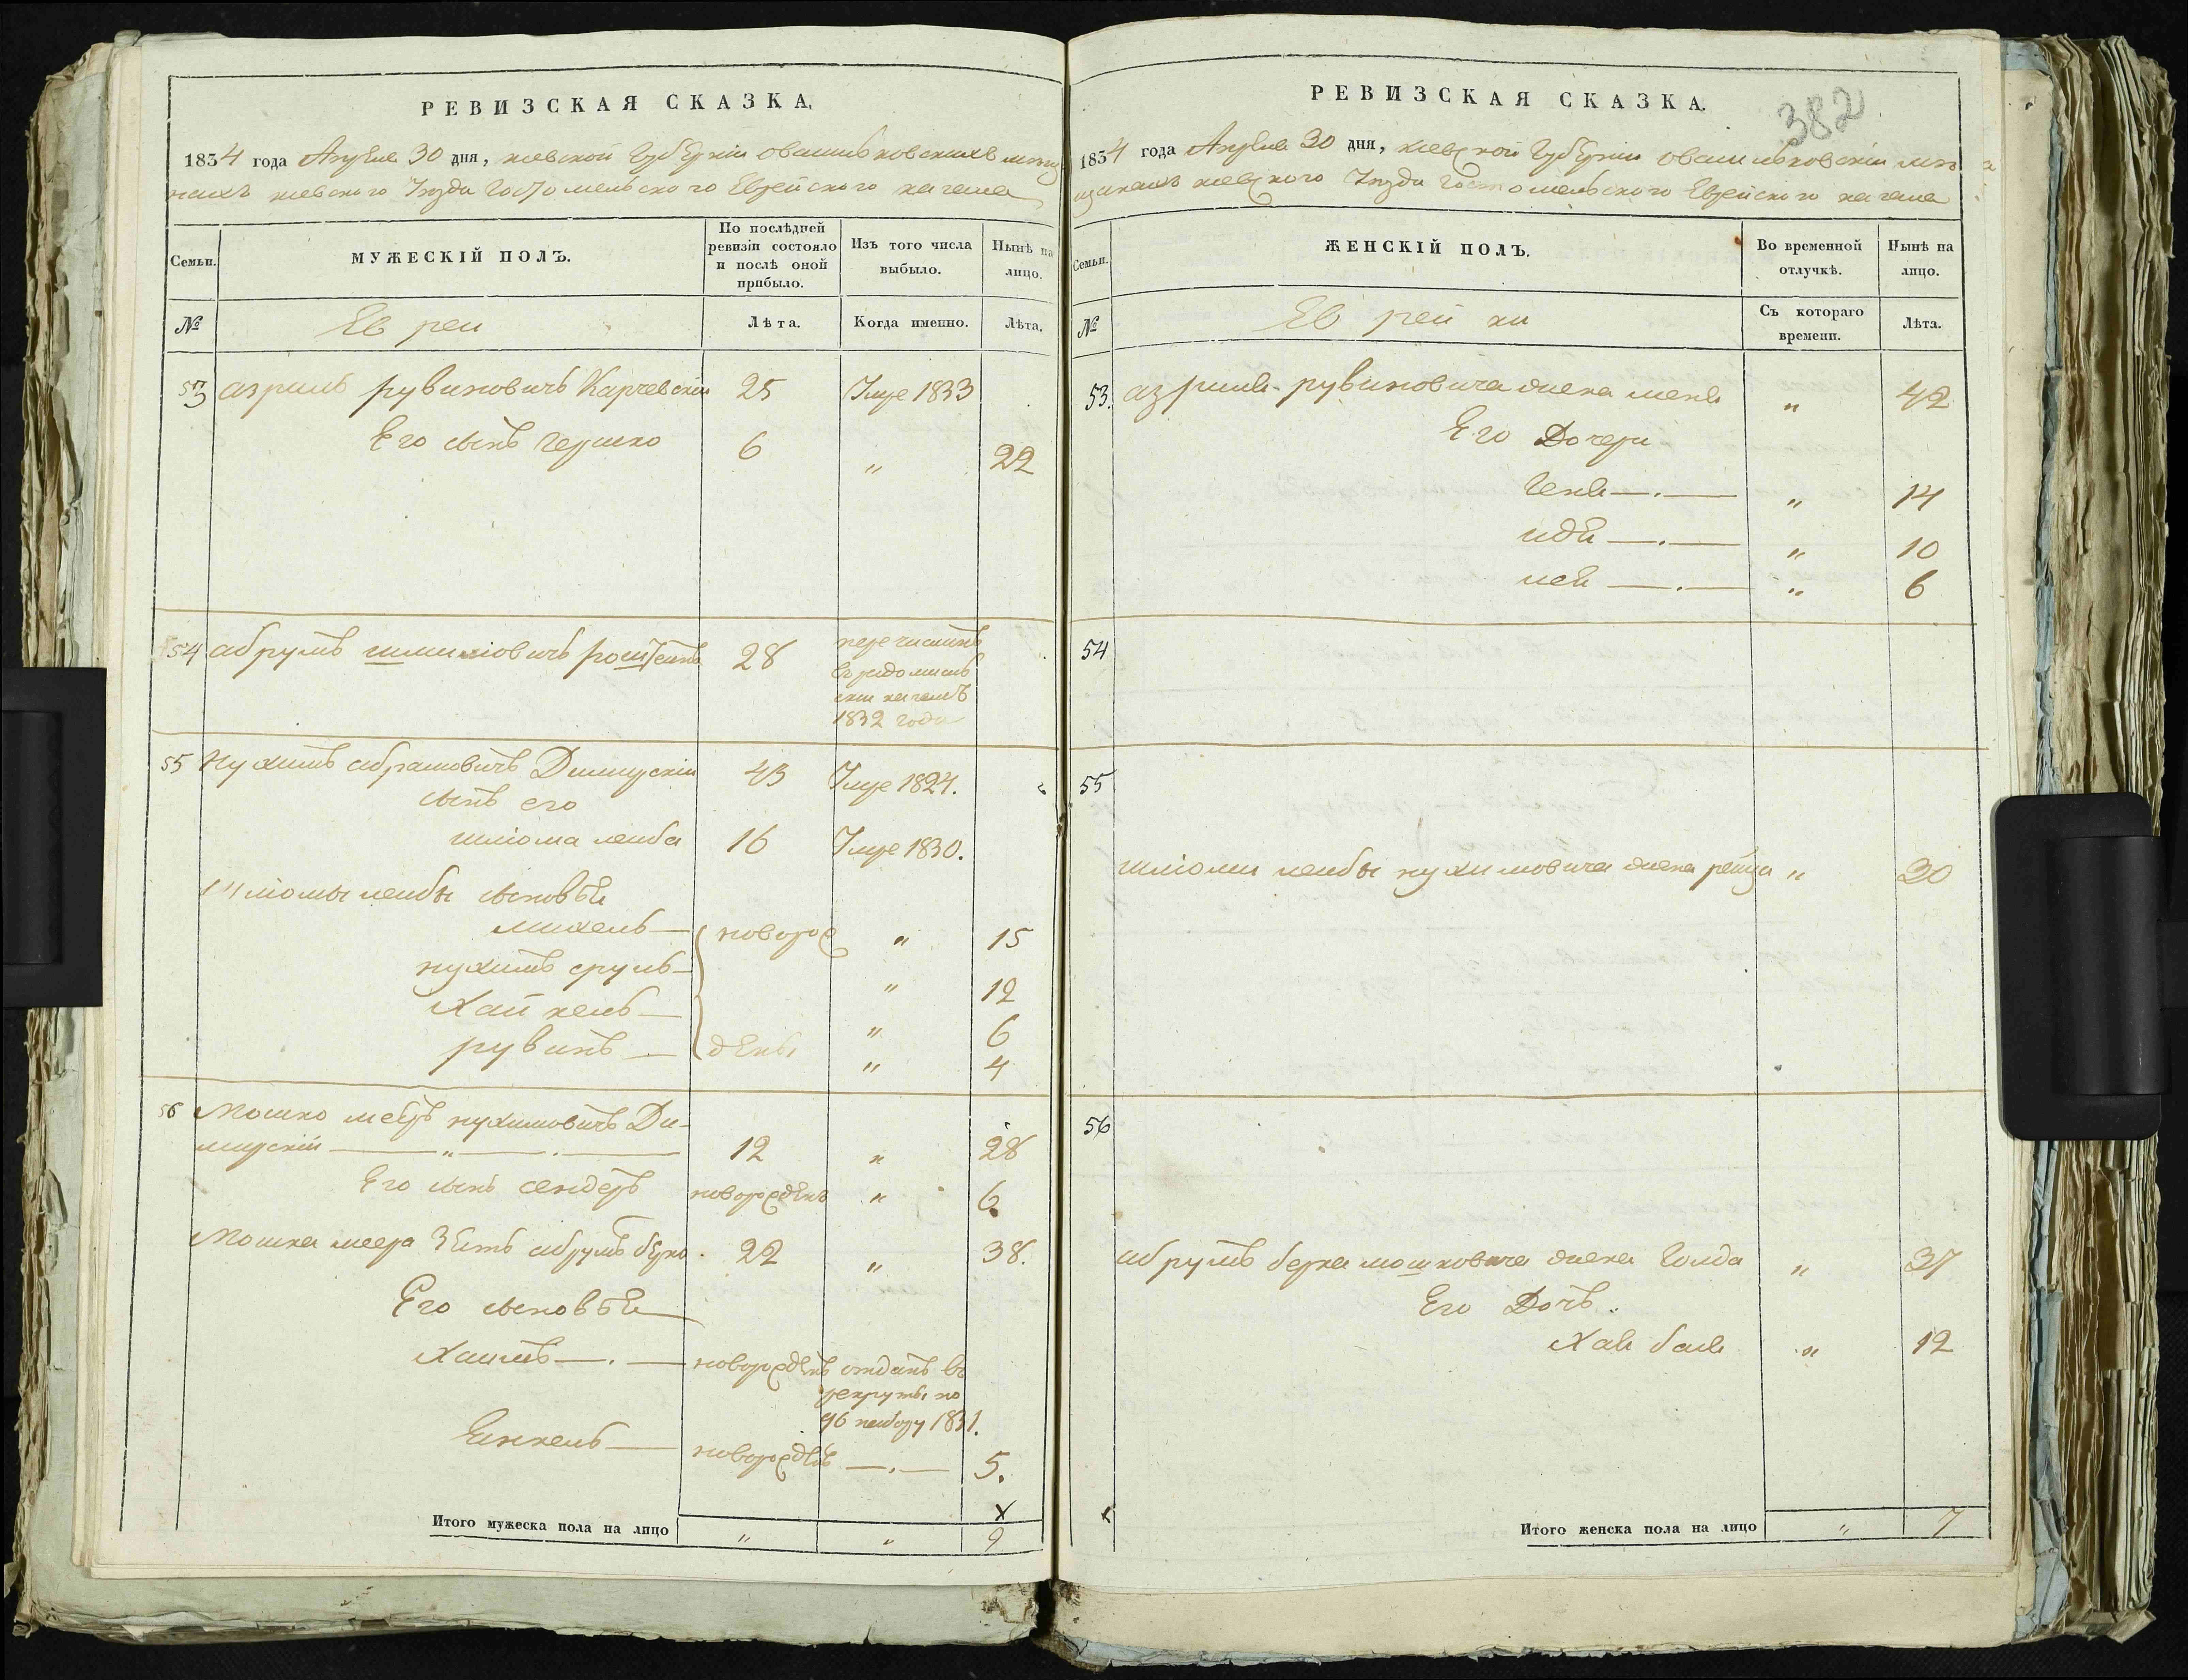 РЕВИЗСКАЯ СКАЗКА.
1834 года Апреля 30 дня, киевской Губернїи овасильковскихъ мещa
нахъ киевского Уезда Гостомельского Еврейского кагала
Семьи.
МУЖЕСКІЙ ПОЛЪ.
По послѣдней ревизіи состояло и послѣ оной прибыло.
Изъ того числа выбыло.
Нынѣ на лицо.
№
Евреи
Лѣта.
Когда именно.
Лѣта.
53 азриль рувиновичъ Карчевскїи 25 Умре 1833
Его сынъ гершко 6 " 22
54 абрумъ 28 перечисленъ
въ радомысль
скїи кагалъ
1832 года
55 Нухимъ абрамовичъ Димирскїи 43 Умре 1824.
сынъ его
шлїома лейба 16 Умре 1830.
Шлїомы лейбы сыновья
михель — новорож " 15
нухимъ сруль — " 12
Хайкель — " 6
рувинъ — дены " 4
56 Мошко мееръ нухимовичъ Ди-
мирскїи — " — . — 12 " 28
Его сынъ сендеръ новорожденъ " 6.
Мошка меера зять абрумъ берко. 22 " 38.
Его сыновья
Хаимъ — . — новорожденъ отданъ въ
рекруты по
96 набору 1831.
Янкель — новорожденъ — . — 5.
x
Итого мужеска пола на лицо " " 9
РЕВИЗСКАЯ СКАЗКА.
382
1834 года Апреля 30 дня, киевской Губернїи овасильковскїи мѣ
щанахъ киевского Уезда Гостомельского Еврейского кагала
Семьи.
ЖЕНСКІЙ ПОЛЪ.
Во временной отлучкѣ.
Нынѣ на лицо.
№
Еврейки
Съ котораго времени.
Лѣта.
53. азриля рувиновича жена меня " 42
Его Дочери
Геня — . — " 14
идя — . — " 10
нея — . — " 6
54
55
шлїомы лейбы нухимовича жена рейза " 30
56
абрумъ берка мошковича жена Голда " 37
Его Дочъ.
Хая бася " 12
x
Итого женска пола на лицо " 7